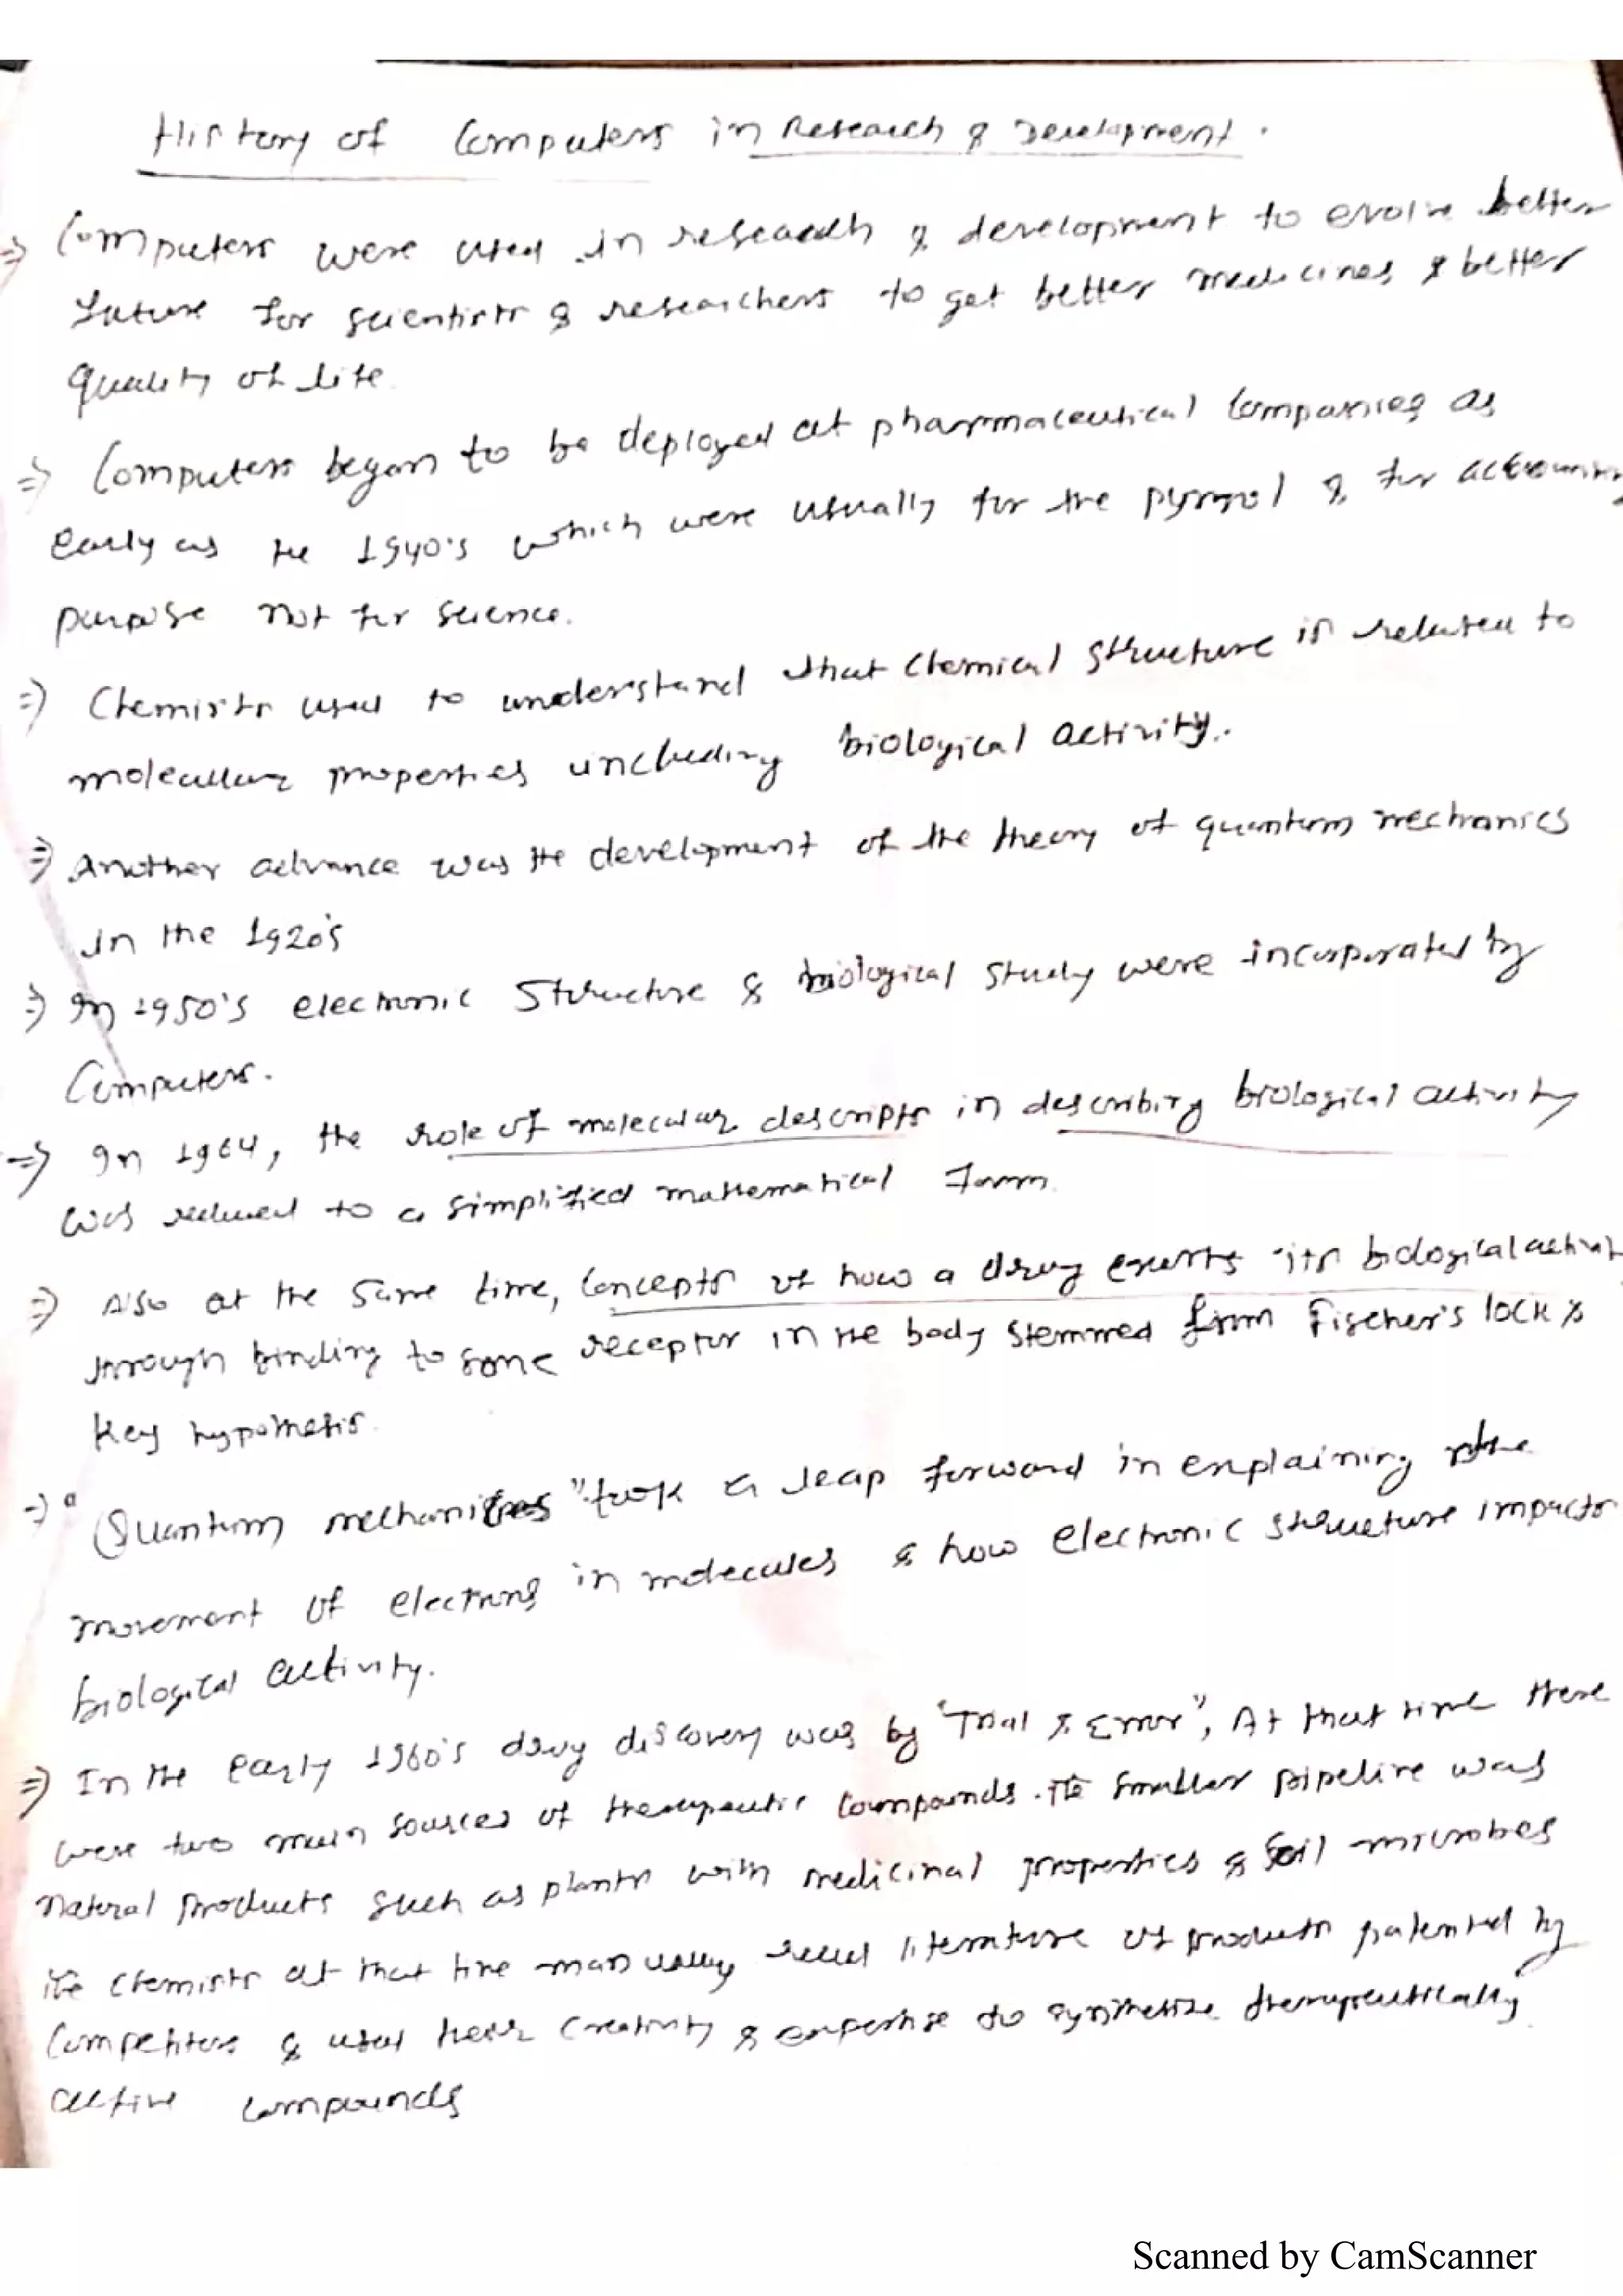 History of Computers in Research & Development.
=> Computers were used in research & development to evolve better
future for scientists & researchers to get better medicines & better
quality of life.
=> Computers began to be deployed at pharmaceutical Companies as
Early as the 1940's which were usually for the pyrrol & for accounting
purpose not for science.
=> Chemists used to understand that Chemical structure is related to
molecular properties including biological activity.
=> Another advance was the development of the theory of quantum mechanics
In the 1920's
=> In 1950's electronic Structure & biological study were incorporated by
Computers.
=> In 1964, the role of molecular descripts in describing biological activity
was reduced to a simplified mathematical Form.
=> Also at the same time, Concepts of how a drug exerts its biological activity
through binding to some receptor in the body stemmed from Fischer's lock &
Key hypothesis.
=> "Quantum mechanics" took a leap forward in explaining the
movement of electrons in molecules & how electronic structure impacts
biological activity.
=> In the early 1960's drug discovery was by "Trial & Error", At that time there
were two main sources of therapeutic Compounds. The smaller pipeline was
natural products such as plants with medicinal properties & Soil microbes
the Chemists at that time manually read literature of products patented by
Competitors & used their Creativity & expertise to synthesize therapeutically
active compounds
Scanned by CamScanner